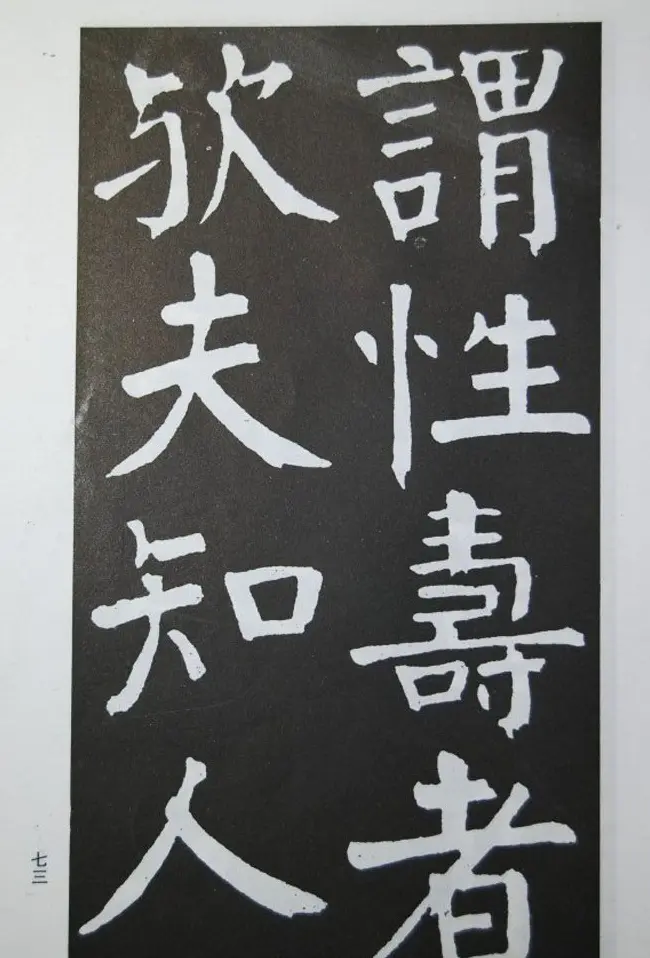 謂性壽者
欤夫知人
七三